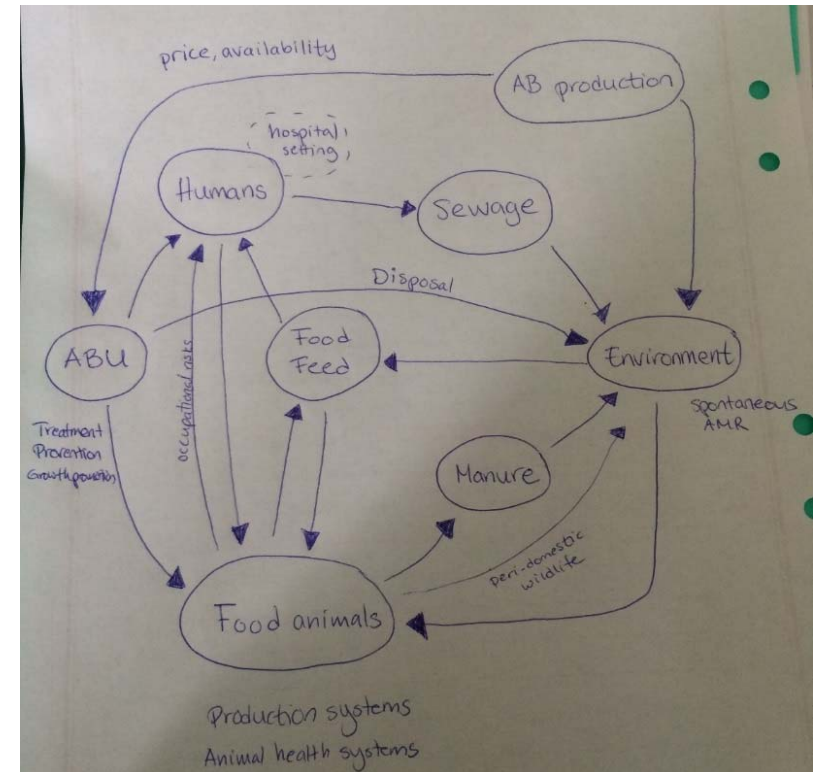 price, availability
AB production
hospital
setting
Humans
Sewage
Disposal
ABU
Food
Feed
Environment
occupational risks
spontaneous
AMR
Treatment
Prevention
Growth promotion
Manure
peri-domestic
wildlife
Food animals
Production systems
Animal health systems